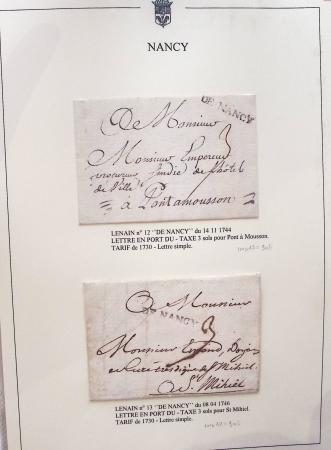 NANCY
DE NANCY
A Monsieur
Monsieur Empereur
procureur sindic de l'hotel
de Ville
à Pontamousson
LENAIN n° 12 "DE NANCY" du 14 11 1744
LETTRE EN PORT DU - TAXE 3 sols pour Pont à Mousson.
TARIF de 1730 - Lettre simple.
A Monsieur
DE NANCY
Monsieur
St Mihiel.
A St. Mihiel
LENAIN n° 13 "DE NANCY" du 08 04 1746
LETTRE EN PORT DU - TAXE 3 sols pour St Mihiel.
TARIF de 1730 - Lettre simple.